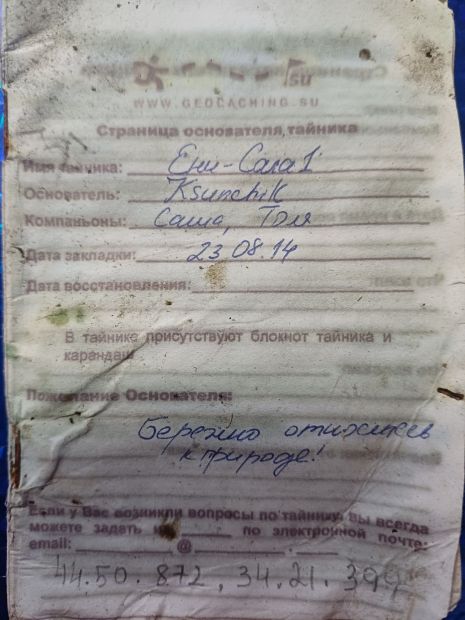 su
WWW.GEOCACHING.SU
Страница основателя тайника
Имя тайника: Ени-Сала 1
Основатель: Ksunchik
Компаньоны: Саша, Толя
Дата закладки: 23.08.14
Дата восстановления:
В тайнике присутствуют блокнот тайника и
карандаш
Пожелание Основателя:
Бережно относитесь
к природе!
Если у Вас возникли вопросы по тайнику, вы всегда
можете задать их по электронной почте:
email: @ .
44.50.872, 34.21.399